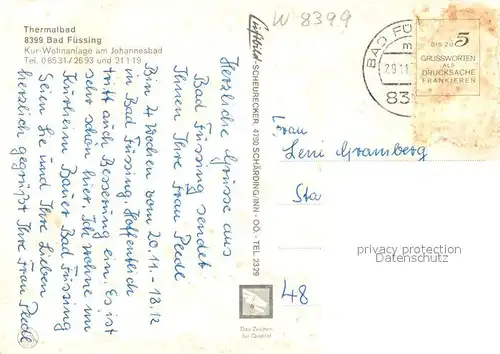 Thermalbad
8399 Bad Füssing
Kur-Wohnanlage am Johannesbad
Tel. 08531/2693 und 21119
Herzliche Grüsse aus
Bad Füssing sendet
Ihnen Ihre Frau
Bin 4 Wochen vom 20.11. - 18.12
in Bad Füssing. Hoffentlich
tritt auch Besserung ein. Es ist
sehr schön hier. Ich wohne im
Kurheim Bauer Bad Füssing
Seien Sie und Ihre Lieben
herzlich gegrüßt Ihre Frau
Luftbild-SCHEURECKER, 4780 SCHÄRDING/INN - OÖ. - TEL. 2329
W 8399
BAD FÜ
29.11.
83
BIS ZU 5
GRUSSWORTEN
ALS
DRUCKSACHE
FRANKIEREN
Frau
Leni Gramberg
Sta
48
Das Zeichen
für Qualität
Privatsphäre
Datenschutz